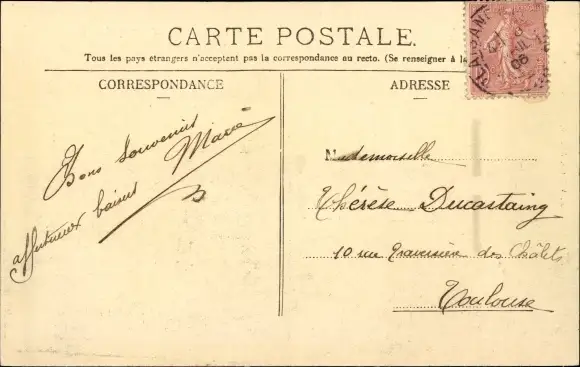 CARTE POSTALE.
Tous les pays étrangers n'acceptent pas la correspondance au recto. (Se renseigner à la
CORRESPONDANCE
ADRESSE
Bons souvenirs
affectueux baisers Maria
Mademoiselle
Thérèse Ducastaing
10 rue Traversière des Châlets
Toulouse